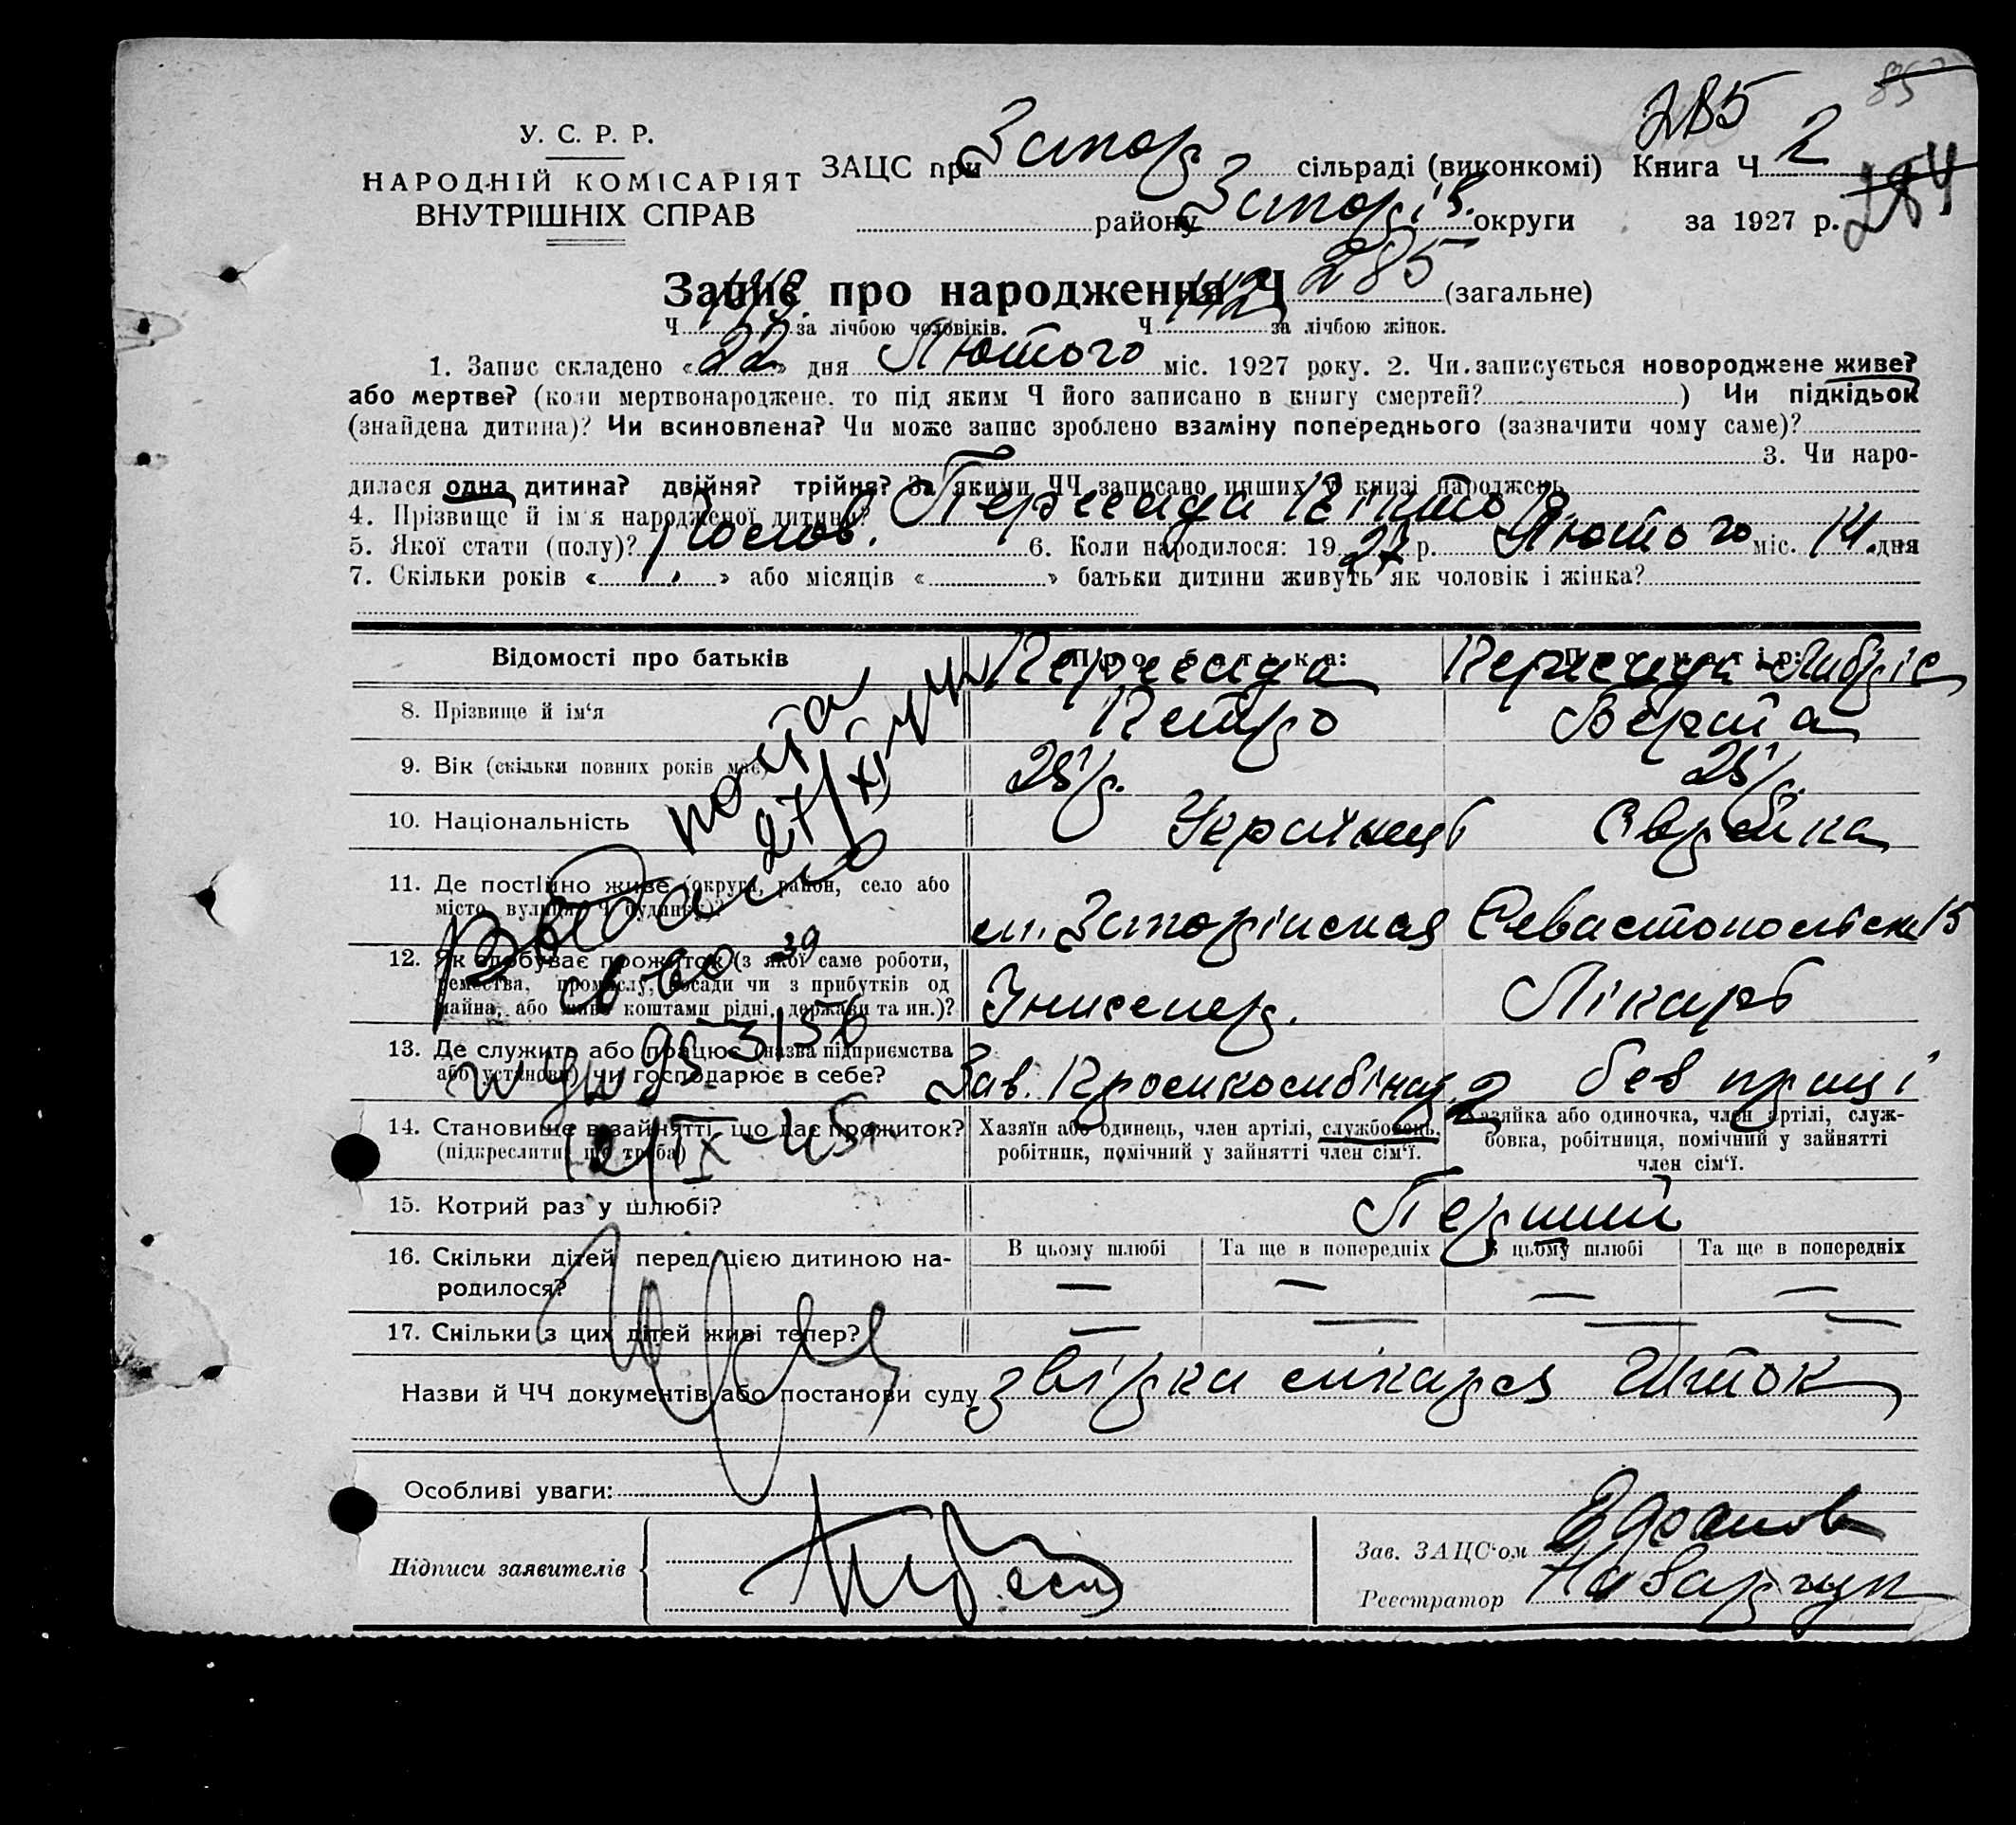 285
У. С. Р. Р.
НАРОДНІЙ КОМІСАРІЯТ
ВНУТРІШНІХ СПРАВ
ЗАЦС при Запор сільраді (виконкомі) Книга Ч 2
району Запоріз. округи за 1927 р. 284
Запис про народження Ч 285 (загальне)
Ч за лічбою чоловіків. Ч 142 за лічбою жінок.
1. Запис складено « 22 » дня Лютого міс. 1927 року. 2. Чи записується новороджене живе?
або мертве? (коли мертвонароджене, то під яким Ч його записано в книгу смертей? ) Чи підкідьок
(знайдена дитина)? Чи всиновлена? Чи може запис зроблено взаміну попереднього (зазначити чому саме)?
3. Чи наро-
дилася одна дитина? двійня? трійня? За якими ЧЧ записано инших у книзі народжень
4. Прізвище й ім'я народженої дитини? Пересада
5. Якої стати (полу)? 6. Коли народилося: 1927 р. Лютого міс. 14 дня
7. Скільки років « » або місяців « » батьки дитини живуть як чоловік і жінка?
Відомості про батьків Про батька: Про матір:
8. Прізвище й ім'я Пересада Петро Пересада Берта
9. Вік (скільки повних років має) 25 р. 25 р.
10. Національність Українець Єврейка
11. Де постійно живе (округа, район, село або
місто, вулиця, Ч будинку)? м. Запоріжжя Севастопольськ 15
12. Як здобуває прожиток (з якої саме роботи,
ремества, промислу, посади чи з прибутків од
майна, або живе коштами рідні, держави та ин.)? Інженер. Лікарь
13. Де служить або працює (назва підприємства
або установи) чи господарює в себе? Зав. без праці
14. Становище в зайнятті, що дає прожиток?
(підкреслити, що треба)
Хазяїн або одинець, член артілі, службовець,
робітник, помічний у зайнятті член сім'ї.
Хазяйка або одиночка, член артілі, служ-
бовка, робітниця, помічний у зайнятті
член сім'ї.
15. Котрий раз у шлюбі? Перший
16. Скільки дітей перед цією дитиною на-
родилося?
В цьому шлюбі Та ще в попередніх В цьому шлюбі Та ще в попередніх
— — — —
17. Скільки з цих дітей живі тепер? — — — —
Назви й ЧЧ документів або постанови суду звірка лікаря Шток
Особливі уваги:
Підписи заявителів
Зав. ЗАЦС'ом
Реєстратор